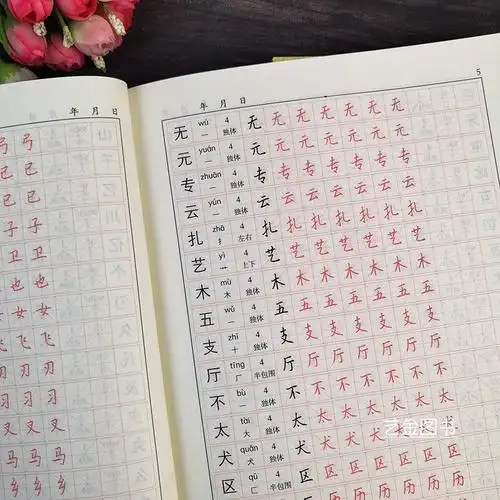 年 月 日
弓 弓
己 己
已 已
子 子
卫 卫
也 也
女 女
飞 飞
刃 刃
习 习
叉 叉
马 马
乡 乡
年 月 日 5
无 wú 一 4 独体 无 无 无 无 无 无 无
元 yuán 一 4 独体 元 元 元 元 元 元 元
专 zhuān 一 4 独体 专 专 专 专 专 专 专
云 yún 一 4 独体 云 云 云 云 云 云 云
扎 zhā 扌 4 左右 扎 扎 扎 扎 扎 扎 扎
艺 yì 艹 4 上下 艺 艺 艺 艺 艺 艺 艺
木 mù 木 4 独体 木 木 木 木 木 木 木
五 wǔ 一 4 独体 五 五 五 五 五 五 五
支 zhī 十 4 独体 支 支 支 支 支 支 支
厅 tīng 厂 4 半包围 厅 厅 厅 厅 厅 厅 厅
不 bù 一 4 独体 不 不 不 不 不 不 不
太 tài 大 4 独体 太 太 太 太 太 太 太
犬 quǎn 犬 4 独体 犬 犬 犬 犬 犬 犬 犬
区 qū 匚 4 区 区 区 区 区 区 区
历 历 历 历 历
艺金图书